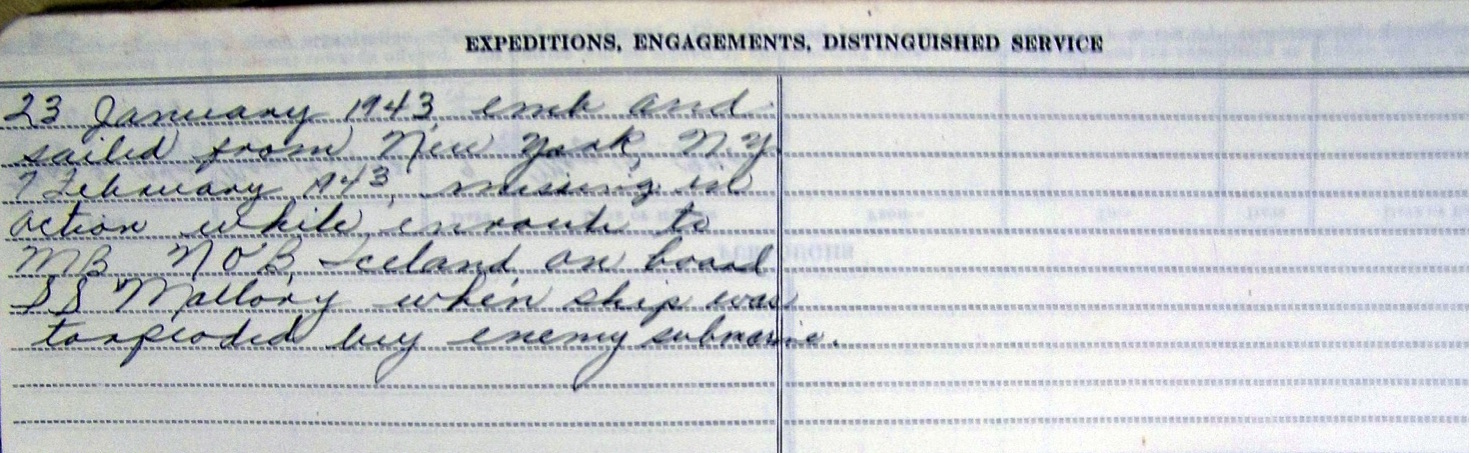 EXPEDITIONS, ENGAGEMENTS, DISTINGUISHED SERVICE
23 January 1943, emb and
sailed from New York, N.Y.
7 February 1943, missing in
action while enroute to
MB, NOB, Iceland on board
SS Mallory when ship was
torpeoded by enemy submarine.